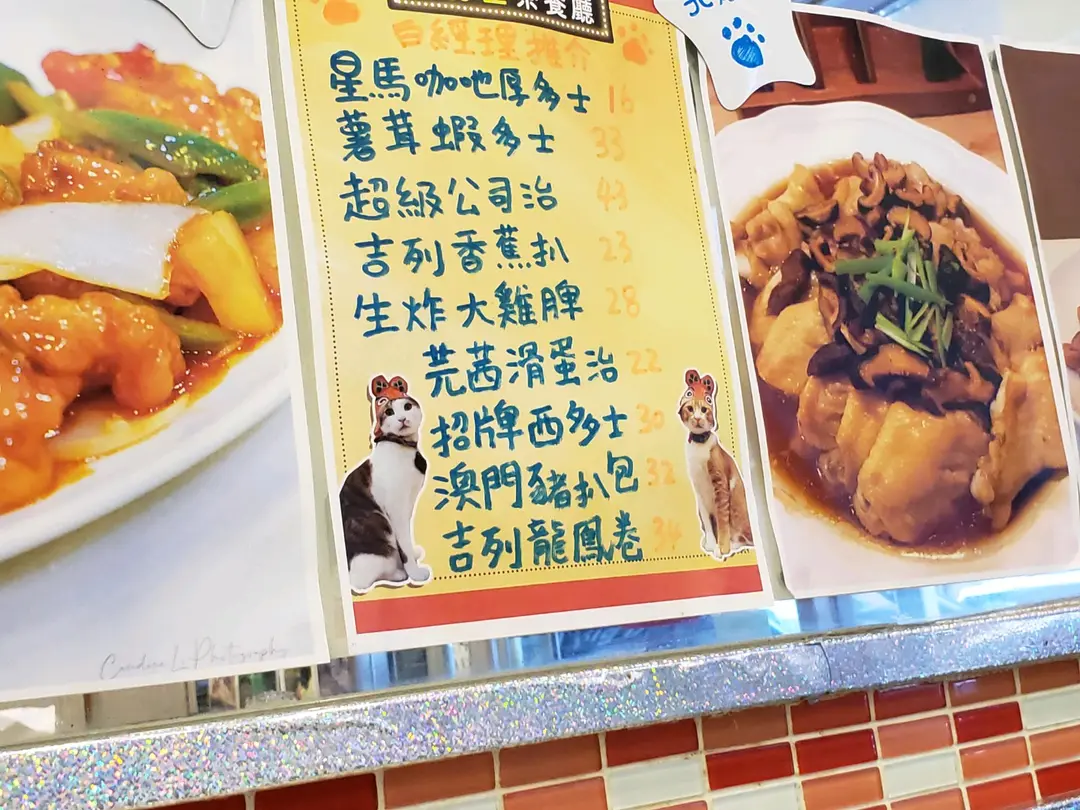 茶餐廳
白經理推介
星馬咖吔厚多士 16
薯茸蝦多士 33
超級公司治 43
吉列香蕉扒 23
生炸大雞脾 28
芫茜滑蛋治 22
招牌西多士 30
澳門豬扒包 32
吉列龍鳳卷 34
Photography